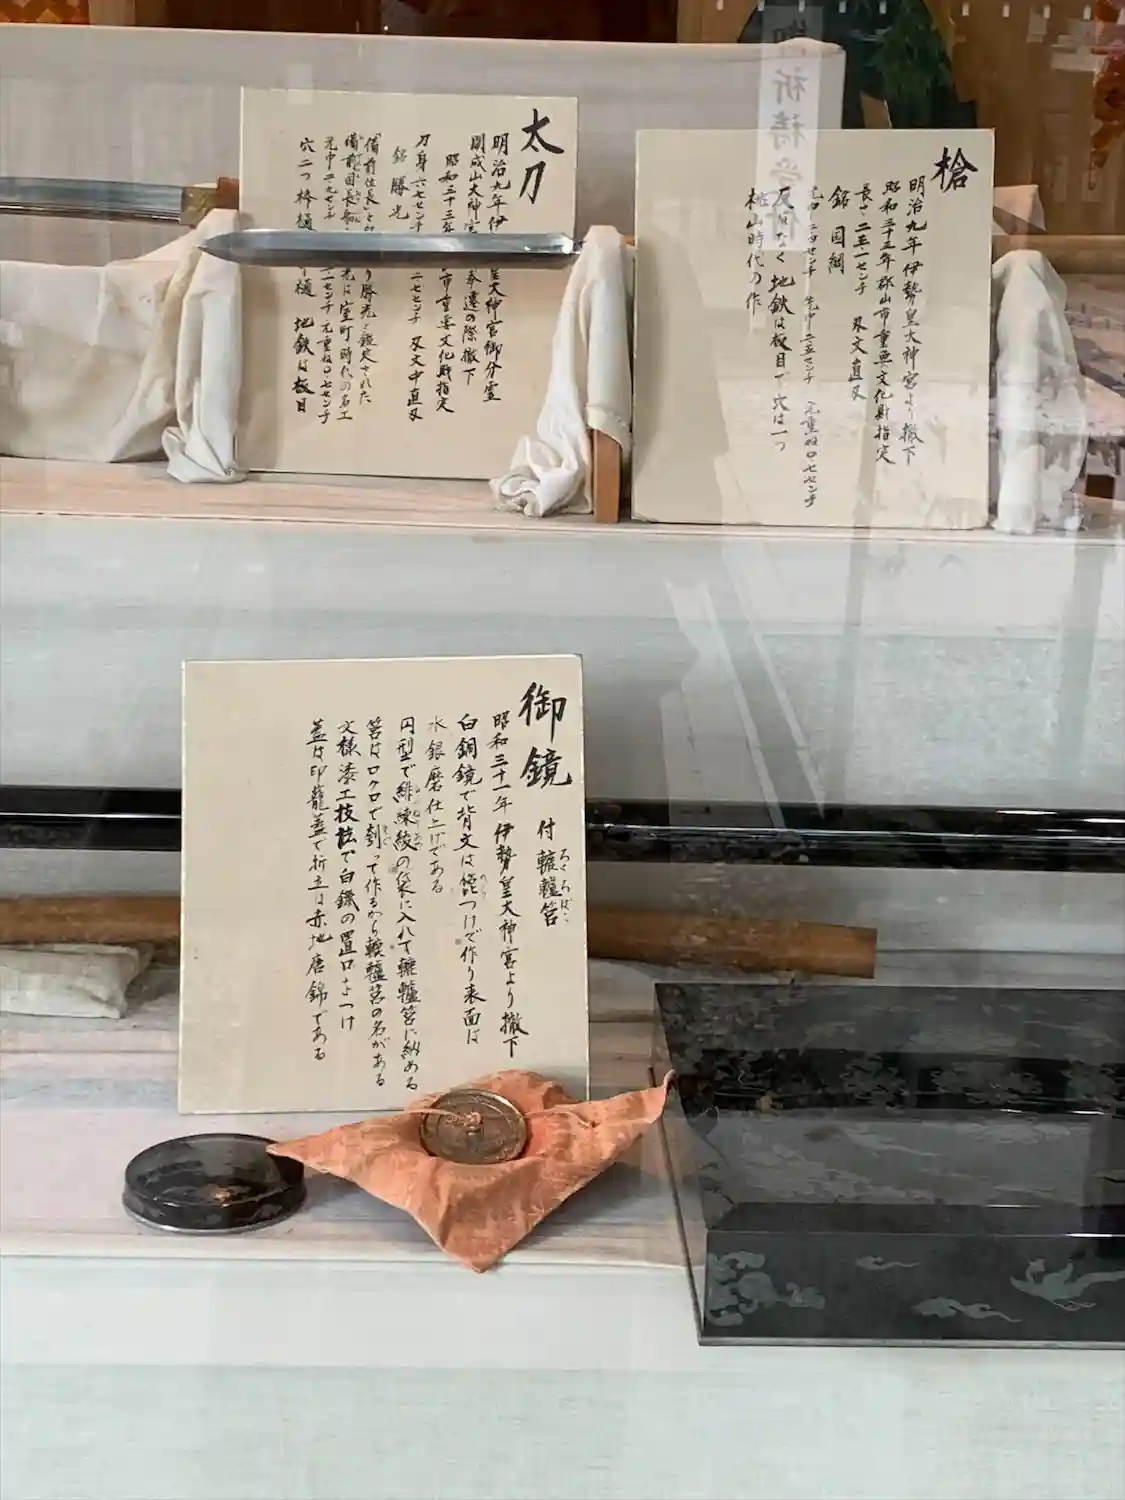 太刀
明治九年伊
皇大神宮御分霊
開成山大神宮
奉遷の際撤下
昭和三十三年
市重要文化財指定
刀身六七センチ
二センチ 刃文中直刃
銘 勝光
「備前住長
り勝光と鑑定された
備前国長船
光は室町時代の名工
元中二・九センチ
一センチ 元重ね〇・七センチ
穴二つ 棒樋
樋 地鉄は板目
槍
明治九年 伊勢皇大神宮より撤下
昭和三十三年 郡山市重要文化財指定
長さ二三・一センチ 刃文直刃
銘 国綱
先中二・五センチ 元重ね〇・七センチ
反りなく 地鉄は板目で 穴は一つ
桃山時代の作
御鏡 付 轆轤筥
ろくろばこ
昭和三十一年 伊勢皇大神宮より撤下
白銅鏡で背文は箆つけで作り表面は
水銀磨仕上げである
円型で緋練綾の袋に入れて轆轤筥に納める
筥はロクロで刳って作るから轆轤筥の名がある
文様漆工技法で白鑞の置口をつけ
蓋は印籠蓋で折立は赤地唐錦である
御祈祷受付